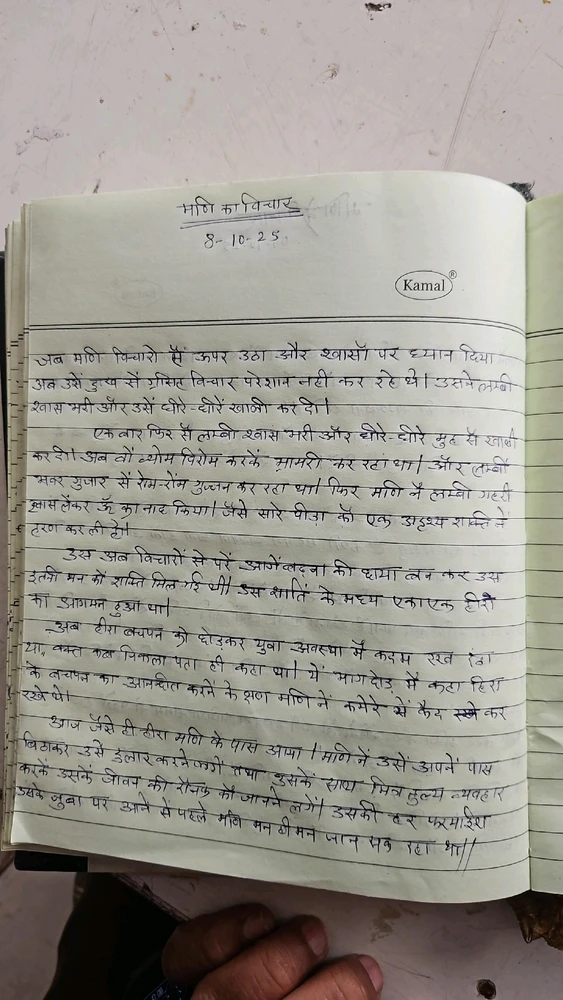 मणि का विचार
8-10-25
Kamal®
जब मणि विचारो सें ऊपर उठा और श्वासों पर ध्यान दिया
अब उसें दुःख सें ग्रसित विचार परेशान नहीं कर रहे थे। उसने लम्बी
श्वास भरी और उसें धीरे-धीरें खाली कर दी।
एक बार फिर सें लम्बी श्वास भरी और धीरे-धीरे मुह सें खाली
कर दी। अब वों विरोम करकें भ्रामरी कर रहा था। और लम्बी
भवर गुजार सें रोम-रोम गुज्जन कर रहा था। फिर मणि नें लम्बी गहरी
श्वास लेंकर ॐ का नाद किया। जैंसे सारे पीडा कों एक अदृश्य शक्ति नें
हरण कर ली हो।
उस अब विचारों से परें आगें की छाया बन कर उस
इतनी मन कों शक्ति मिल गई थी। इस शांति कें मध्य एकाएक हीरों
का आगमन हुआ था।
अब हीरा बचपन कों छोड़कर युवा अवस्था में कदम रख रहा
था, वक्त कब निकला पता ही कहा था। यें भाग दोड़ में कहा हिरा
कें बचपन का आनन्दीत करने के क्षण मणि नें कमेरे सें कैद कर
रखे थें।
आज जैंसे ही हीरा मणि के पास आया। मणि नें उसें अपनें पास
बिठाकर उसें दुलार करनें लगें तथा उसकें साथ मित्र तुल्य व्यवहार
करकें उसकें जीवन की रौनक कों जाननें लगें। उसकी हर फरमाईश
उसकें जुबा पर आनें सें पहलें मणि मन ही मन जान रहा था।।